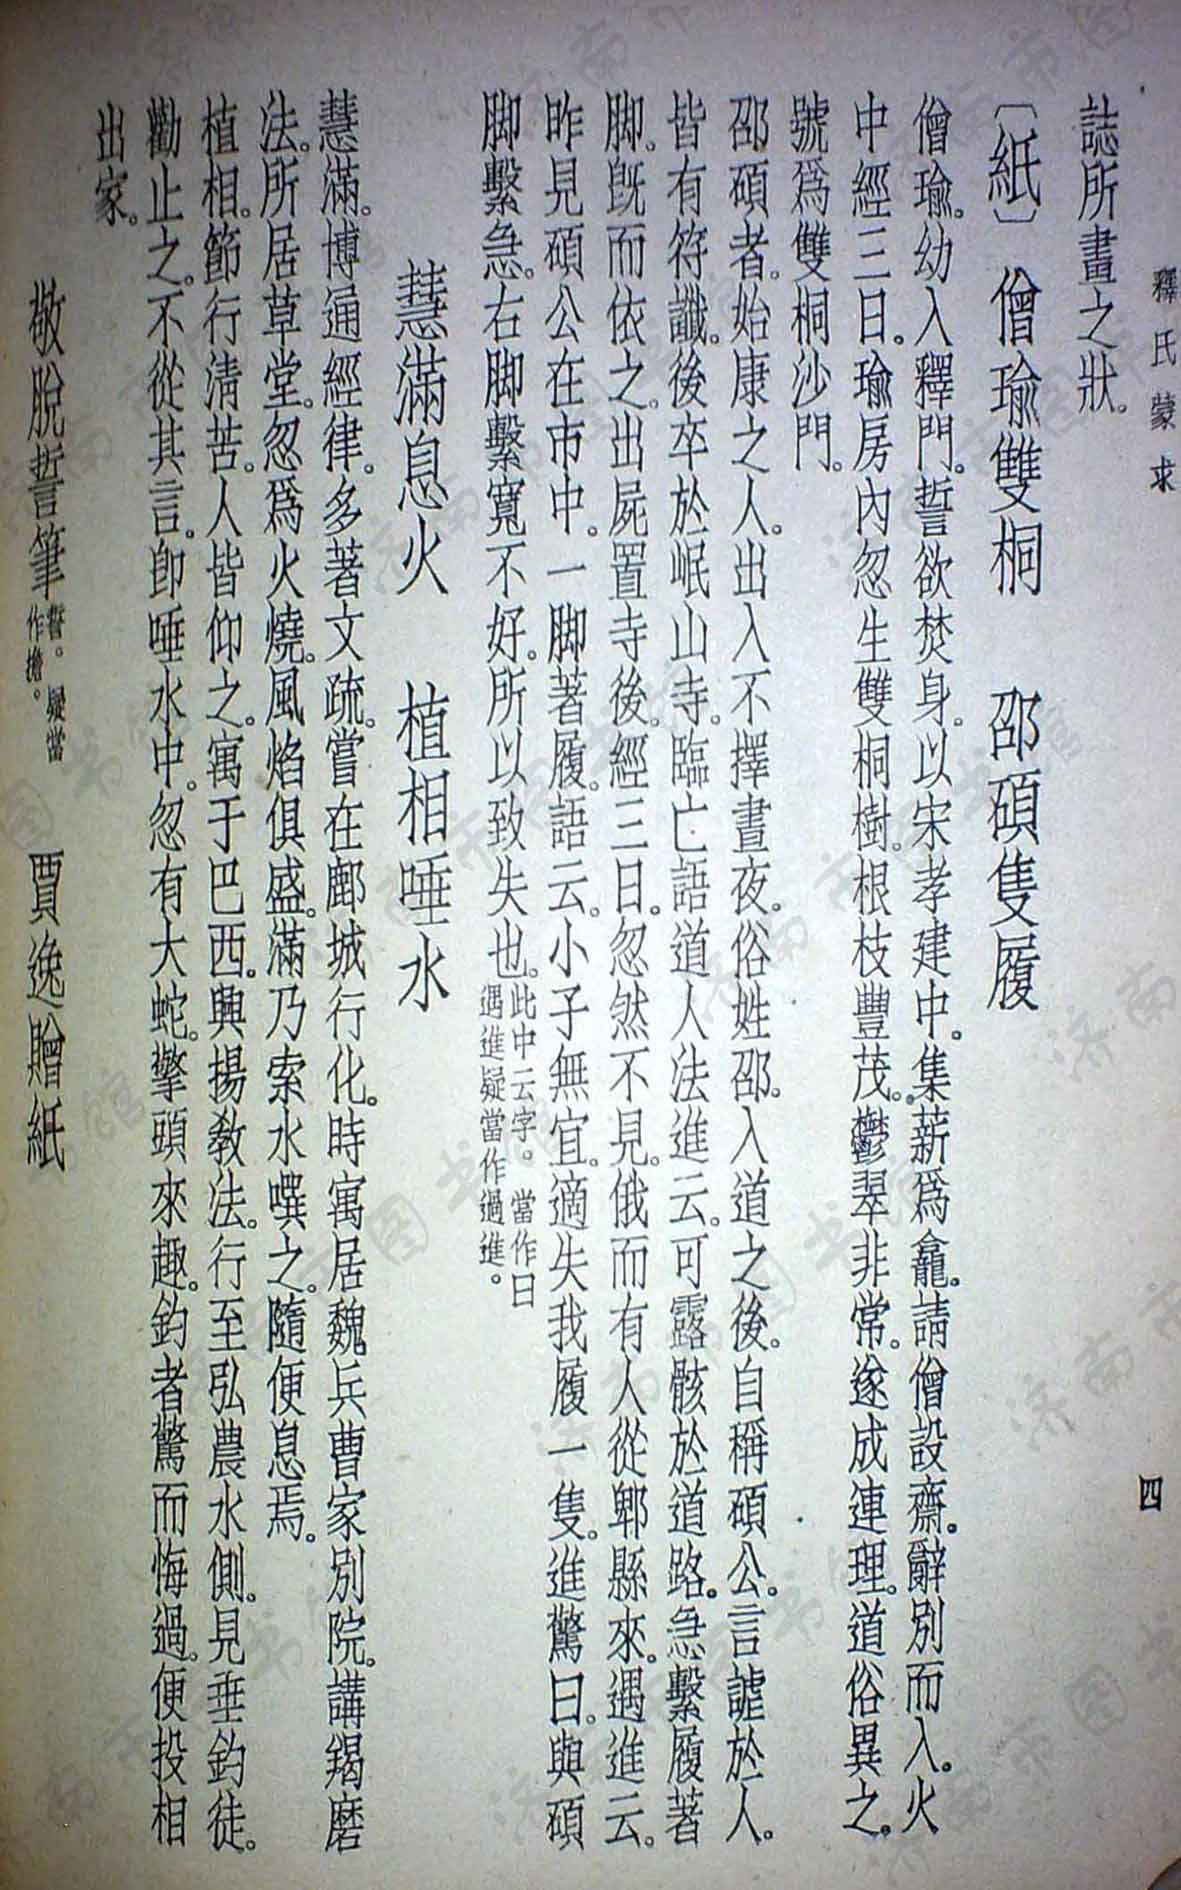 釋氏蒙求
四
誌所畫之狀。
〔紙〕 僧瑜雙桐 邵碩隻履
僧瑜。幼入釋門。誓欲焚身。以宋孝建中。集薪爲龕。請僧設齋。辭別而入。火
中經三日。瑜房內忽生雙桐樹。根枝豐茂。鬱翠非常。遂成連理。道俗異之。
號爲雙桐沙門。
邵碩者。始康之人。出入不擇晝夜。俗姓邵。入道之後。自稱碩公。言謔於人。
皆有符讖。後卒於岷山寺。臨亡語道人法進云。可露骸於道路。急繫履著
脚。旣而依之。出屍置寺後。經三日。忽然不見。俄而有人從郫縣來。遇進云。
昨見碩公在市中。一脚著履。語云。小子無宜。適失我履一隻。進驚曰。與碩
脚繫急。右脚繫寬不好。所以致失也。此中云字。當作曰
遇進疑當作過進。
慧滿息火 植相唾水
慧滿。博通經律。多著文疏。嘗在鄜城行化。時寓居魏兵曹家別院。講羯磨
法。所居草堂。忽爲火燒。風焰俱盛。滿乃索水噀之。隨便息焉。
植相。節行淸苦。人皆仰之。寓于巴西。興揚敎法。行至弘農水側。見垂釣徒。
勸止之。不從其言。卽唾水中。忽有大蛇。擎頭來趣。釣者驚而悔過。便投相
出家。
敬脫誓筆誓。疑當
作擔。 賈逸贈紙